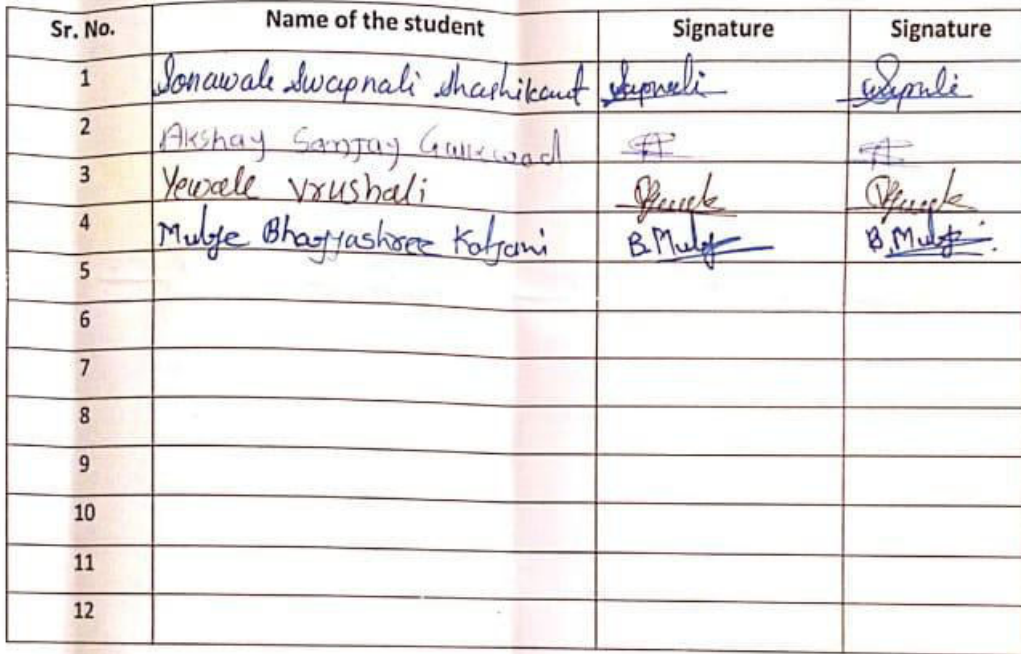 Sr. No. Name of the student Signature Signature
1 Sonawale Swapnali Shashikant Swapnali Swapnali
2 Akshay Sanjay Gaikwad
3 Yewale Vrushali
4 Mulje Bhagyashree B.Mulje B.Mulje
5
6
7
8
9
10
11
12